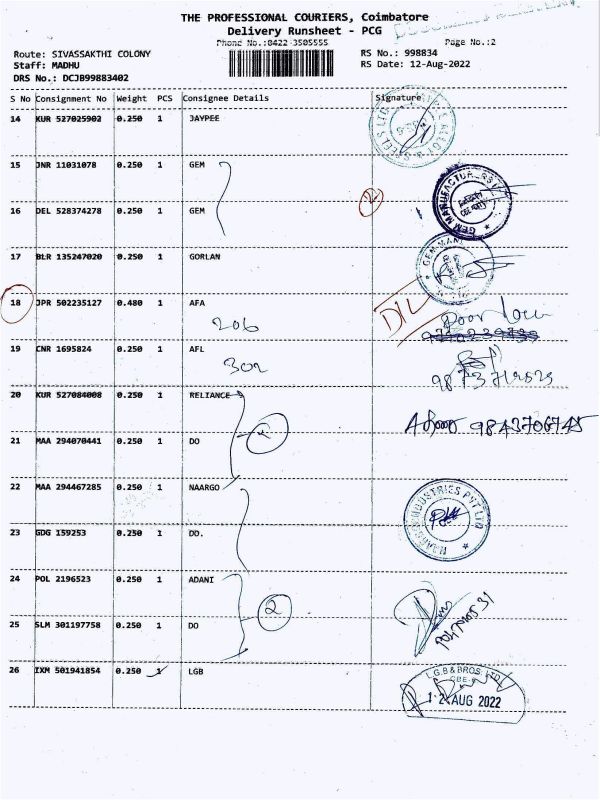 THE PROFESSIONAL COURIERS, Coimbatore
Delivery Runsheet - PCG
Phone No.:0422-3505555
Page No.:2
Route: SIVASSAKTHI COLONY
RS No.: 998834
Staff: MADHU
RS Date: 12-Aug-2022
DRS No.: DCJB99883402
S No Consignment No Weight PCS Consignee Details Signature
14 KUR 527025902 0.250 1 JAYPEE
15 JNR 11031078 0.250 1 GEM
16 DEL 528374278 0.250 1 GEM
17 BLR 135247020 0.250 1 GORLAN
18 JPR 502235127 0.480 1 AFA
206
D/L
Door lock
19 CNR 1695824 0.250 1 AFL
302
20 KUR 527084008 0.250 1 RELIANCE
9843706745
21 MAA 294070441 0.250 1 DO
22 MAA 294467285 0.250 1 NAARGO
NAARGO INDUSTRIES PVT LTD
23 GDG 159253 0.250 1 DO.
24 POL 2196523 0.250 1 ADANI
2
25 SLM 301197758 0.250 1 DO
26 IXM 501941854 0.250 1 LGB
L.G.B & BROS. LTD
CBE-6
12 AUG 2022